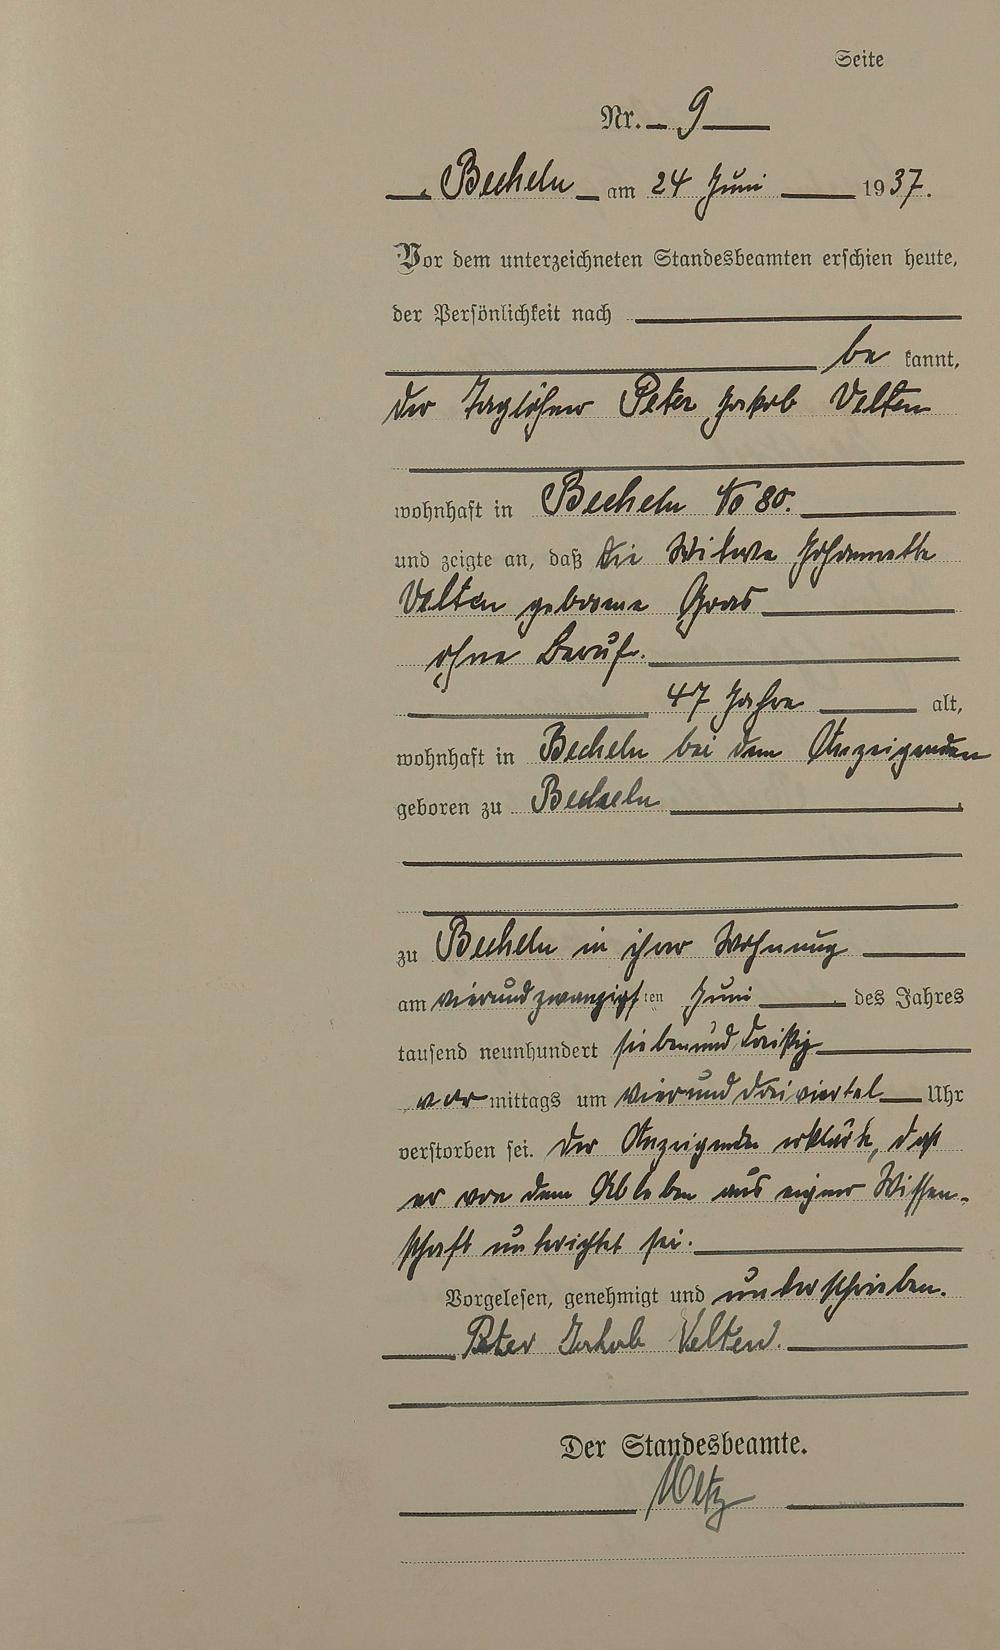 Seite
Nr. 9
Becheln am 24 Juni 1937.
Vor dem unterzeichneten Standesbeamten erschien heute,
der Persönlichkeit nach
be kannt,
der Taglöhner Peter Jakob Velten
wohnhaft in Becheln No 80.
und zeigte an, daß die Witwe Johannette
Velten geborene Gras
ohne Beruf.
47 Jahre alt,
wohnhaft in Becheln bei dem Anzeigenden
geboren zu Becheln
zu Becheln in ihrer Wohnung
am vierundzwanzigsten Juni des Jahres
tausend neunhundert siebenunddreißig
vor mittags um vierunddreiviertel Uhr
verstorben sei. Der Anzeigende erklärte, daß
er von dem Ableben aus eigener Wissen-
schaft unterrichtet sei.
Vorgelesen, genehmigt und unterschrieben.
Peter Jakob Velten.
Der Standesbeamte.
Metz